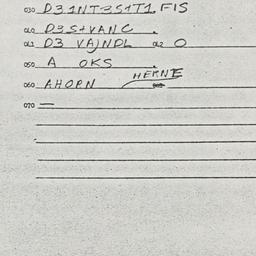 030 D3 1NT-3S4T1 FIS
040 D3 S+VANC
041 D3 VAJNDL 042 O
050 A OKS
HERNE
060 AHORN
070 —